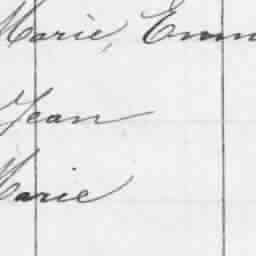 Marie, Emm
Jean
Marie